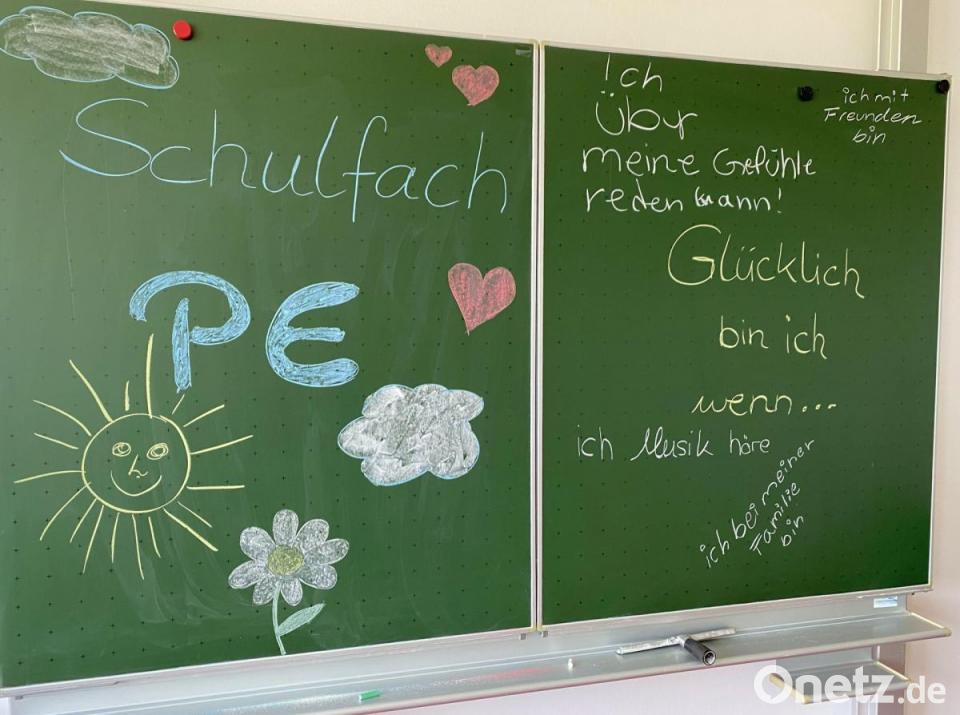 Schulfach
PE
Ich
Über
meine Gefühle
reden kann!
ich mit
Freunden
bin
Glücklich
bin ich
wenn...
ich Musik höre
ich bei meiner
Familie
bin
Onetz.de